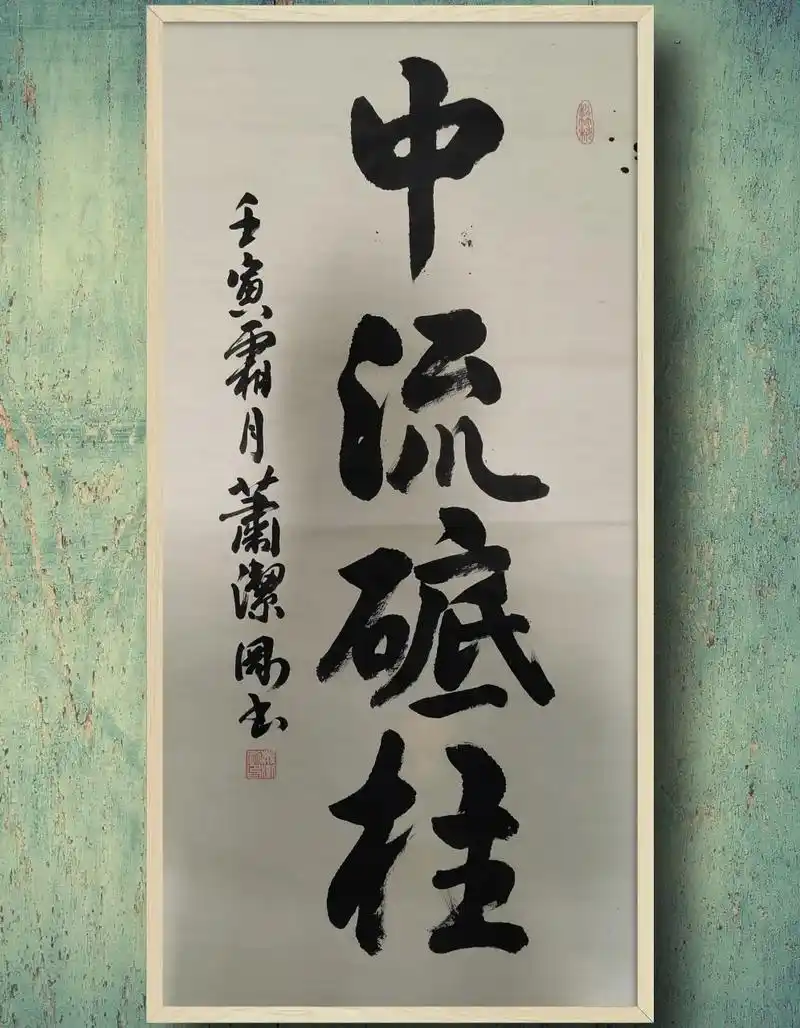 中流砥柱
壬寅霜月蕭潔剛書